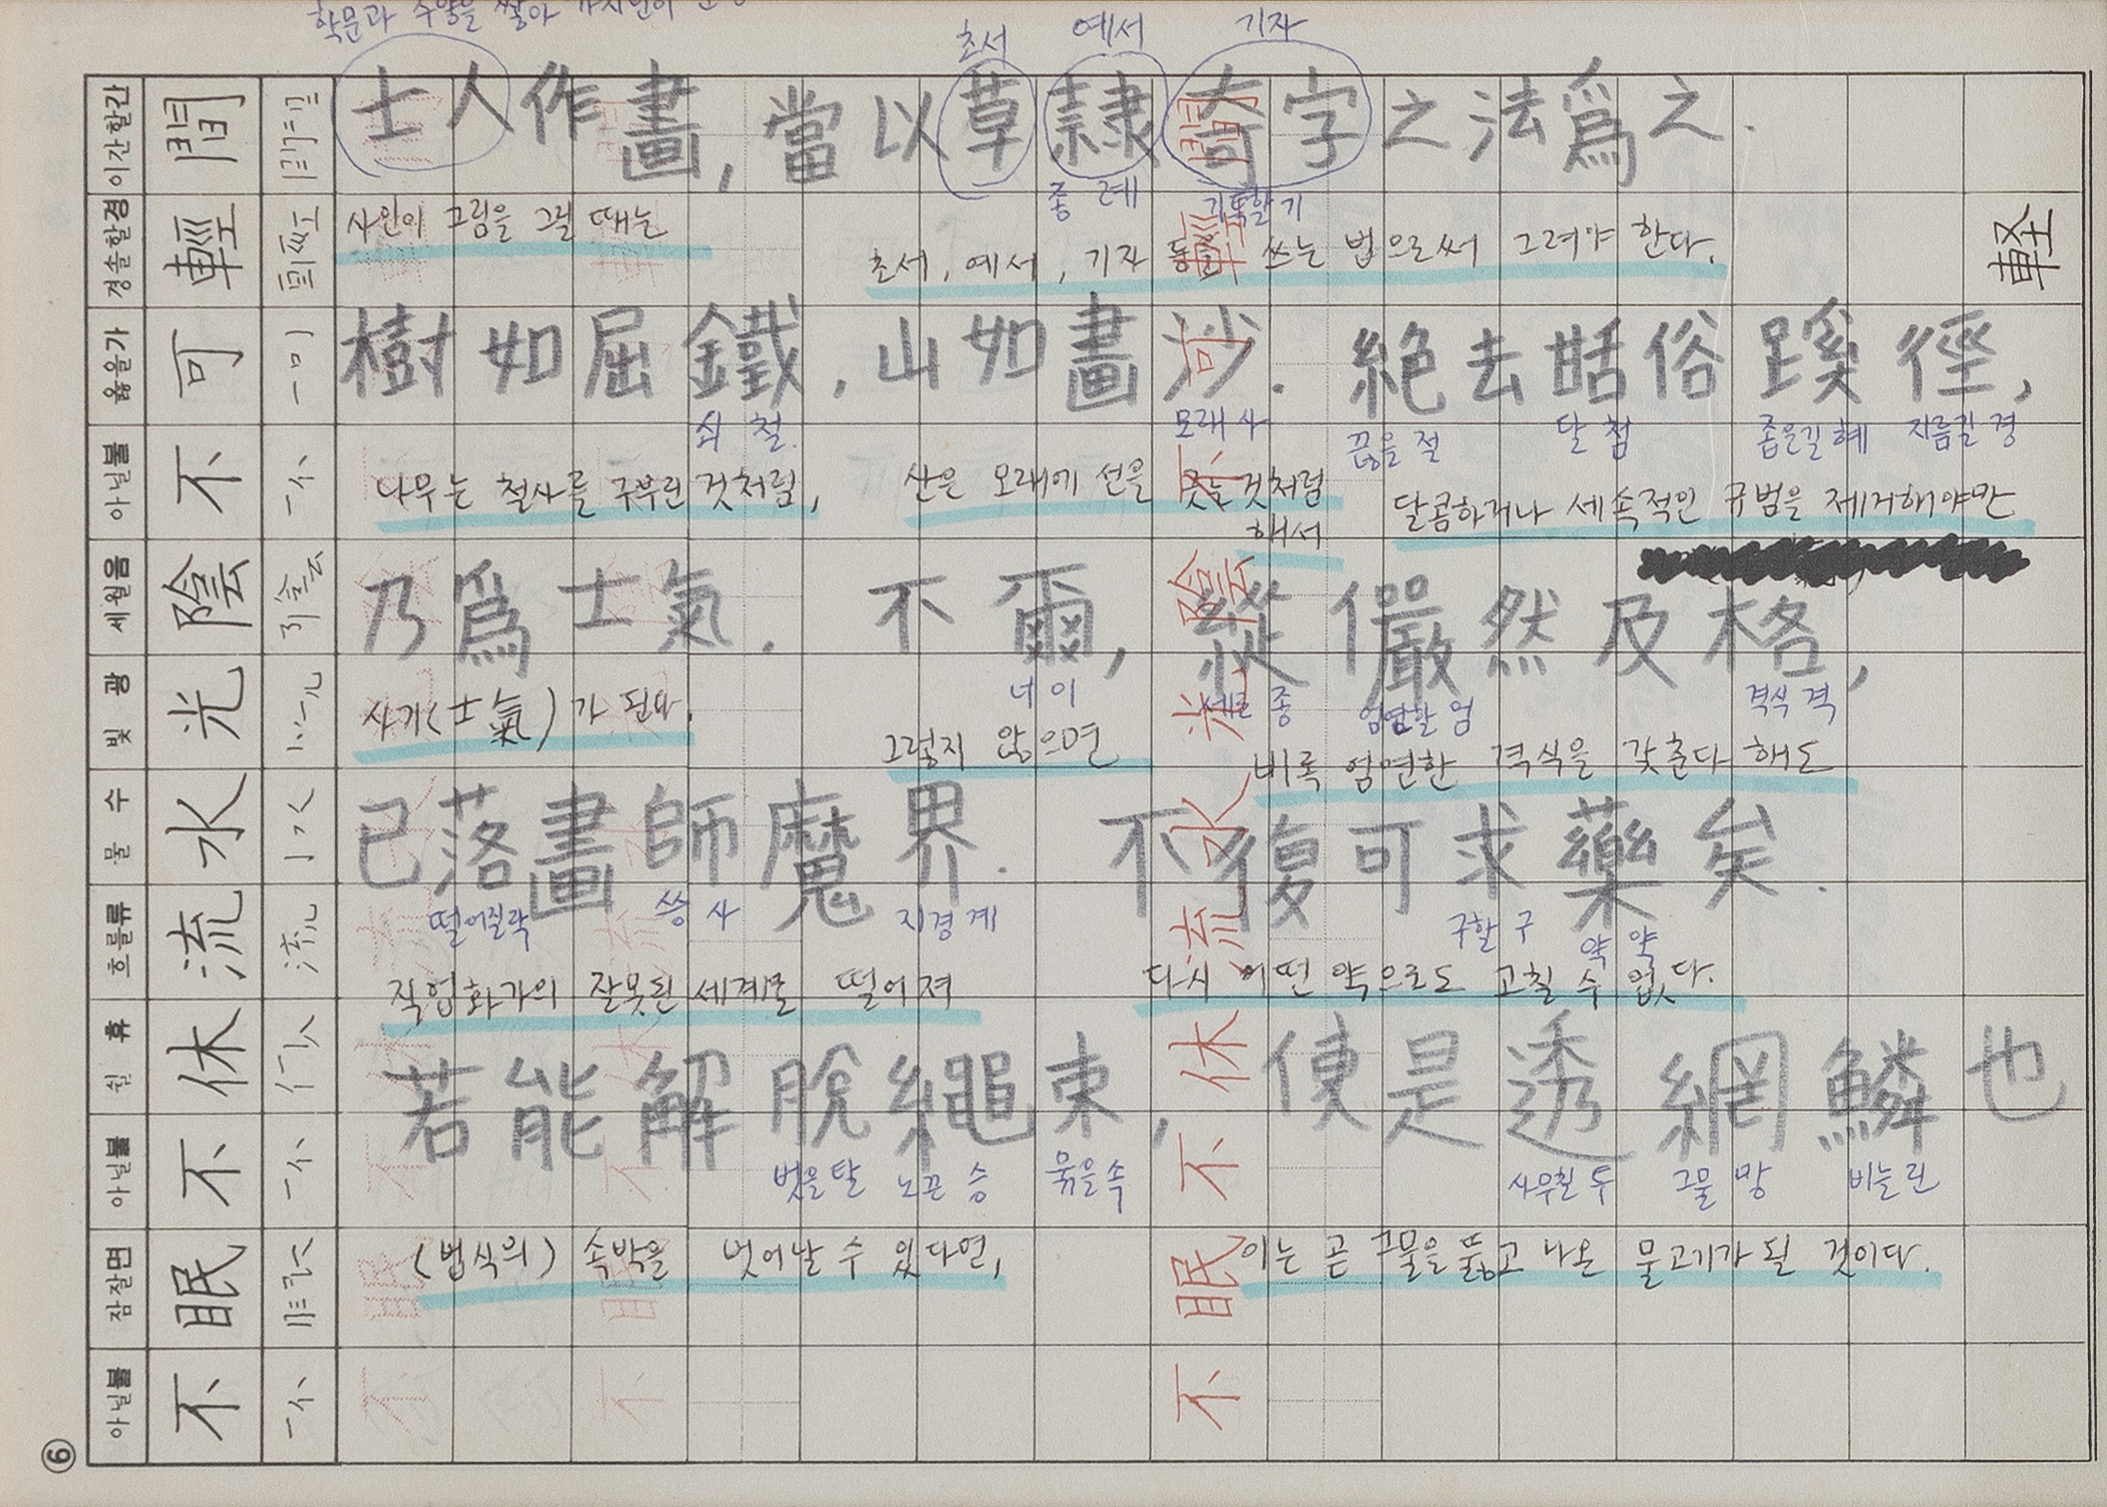 학문과 수양을 쌓아
초서 예서 기자
士人作畫, 當以草隷奇字之法爲之.
종 례 기특할 기
사인이 그림을 그릴 때는
초서, 예서, 기자 등을 쓰는 법으로써 그려야 한다.
樹如屈鐵, 山如畫沙. 絶去甛俗蹊徑,
쇠 철. 모래 사 끊을 절 달 첨 좁은길 혜 지름길 경
나무는 철사를 구부린 것처럼, 산은 모래에 선을 긋는 것처럼
해서
달콤하거나 세속적인 규범을 제거해야만
乃爲士氣. 不爾, 縱儼然及格,
너 이 세로 종 엄할 엄 격식 격
사기(士氣)가 된다. 그렇지 않으면 비록 엄연한 격식을 갖춘다 해도
已落畫師魔界. 不復可求藥矣.
떨어질락 스승 사 지경 계 구할 구 약 약
직업화가의 잘못된 세계로 떨어져 다시 어떤 약으로도 고칠 수 없다.
若能解脫繩束, 便是透網鱗也
벗을탈 노끈 승 묶을속 사무칠 투 그물 망 비늘 린
(법식의) 속박을 벗어날 수 있다면, 이는 곧 그물을 뚫고 나온 물고기가 될 것이다.
軽
이간할간 間
경솔할경 輕
옳을가 可
아닐불 不
세월음 陰
빛 광 光
물 수 水
흐를류 流
쉴 휴 休
아닐불 不
잠잘면 眠
아닐불 不
間輕可不陰光水流休不眠不
6